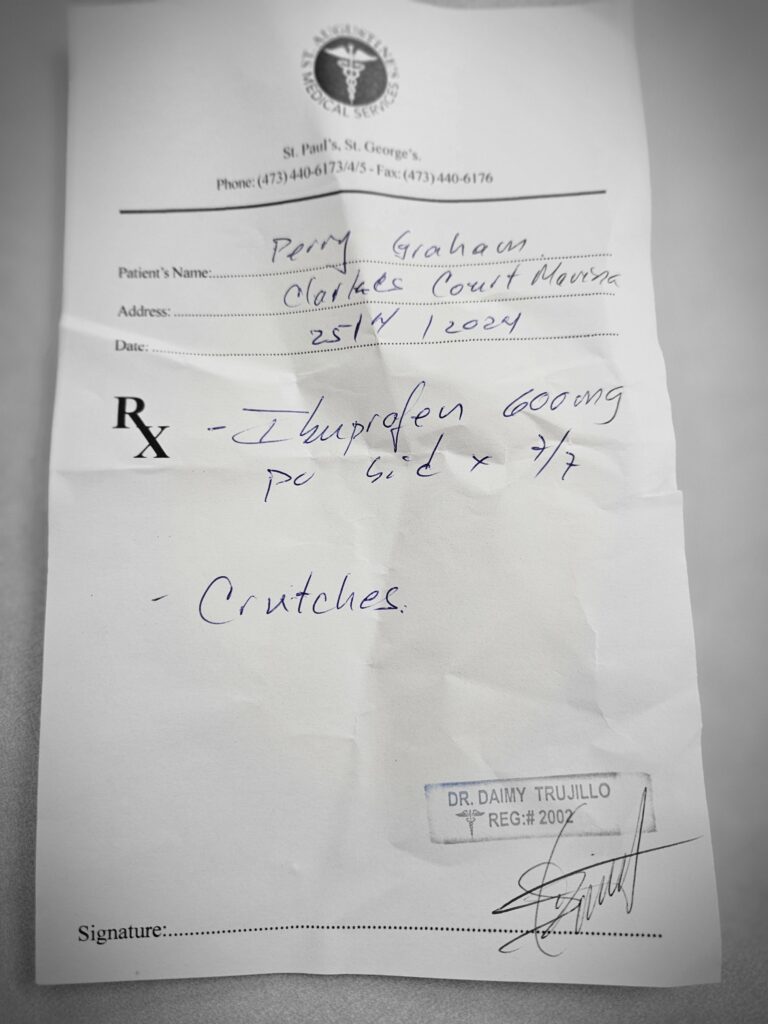 ST. AUGUSTINE'S MEDICAL SERVICES
St. Paul's, St. George's.
Phone: (473) 440-6173/4/5 - Fax: (473) 440-6176
Patient's Name: Perry Graham
Address: Clarkes Court Marina
Date: 25/ /2024
Rx - Ibuprofen 600mg
po bid x 7/7
- Crutches.
DR. DAIMY TRUJILLO
REG:# 2002
Signature: